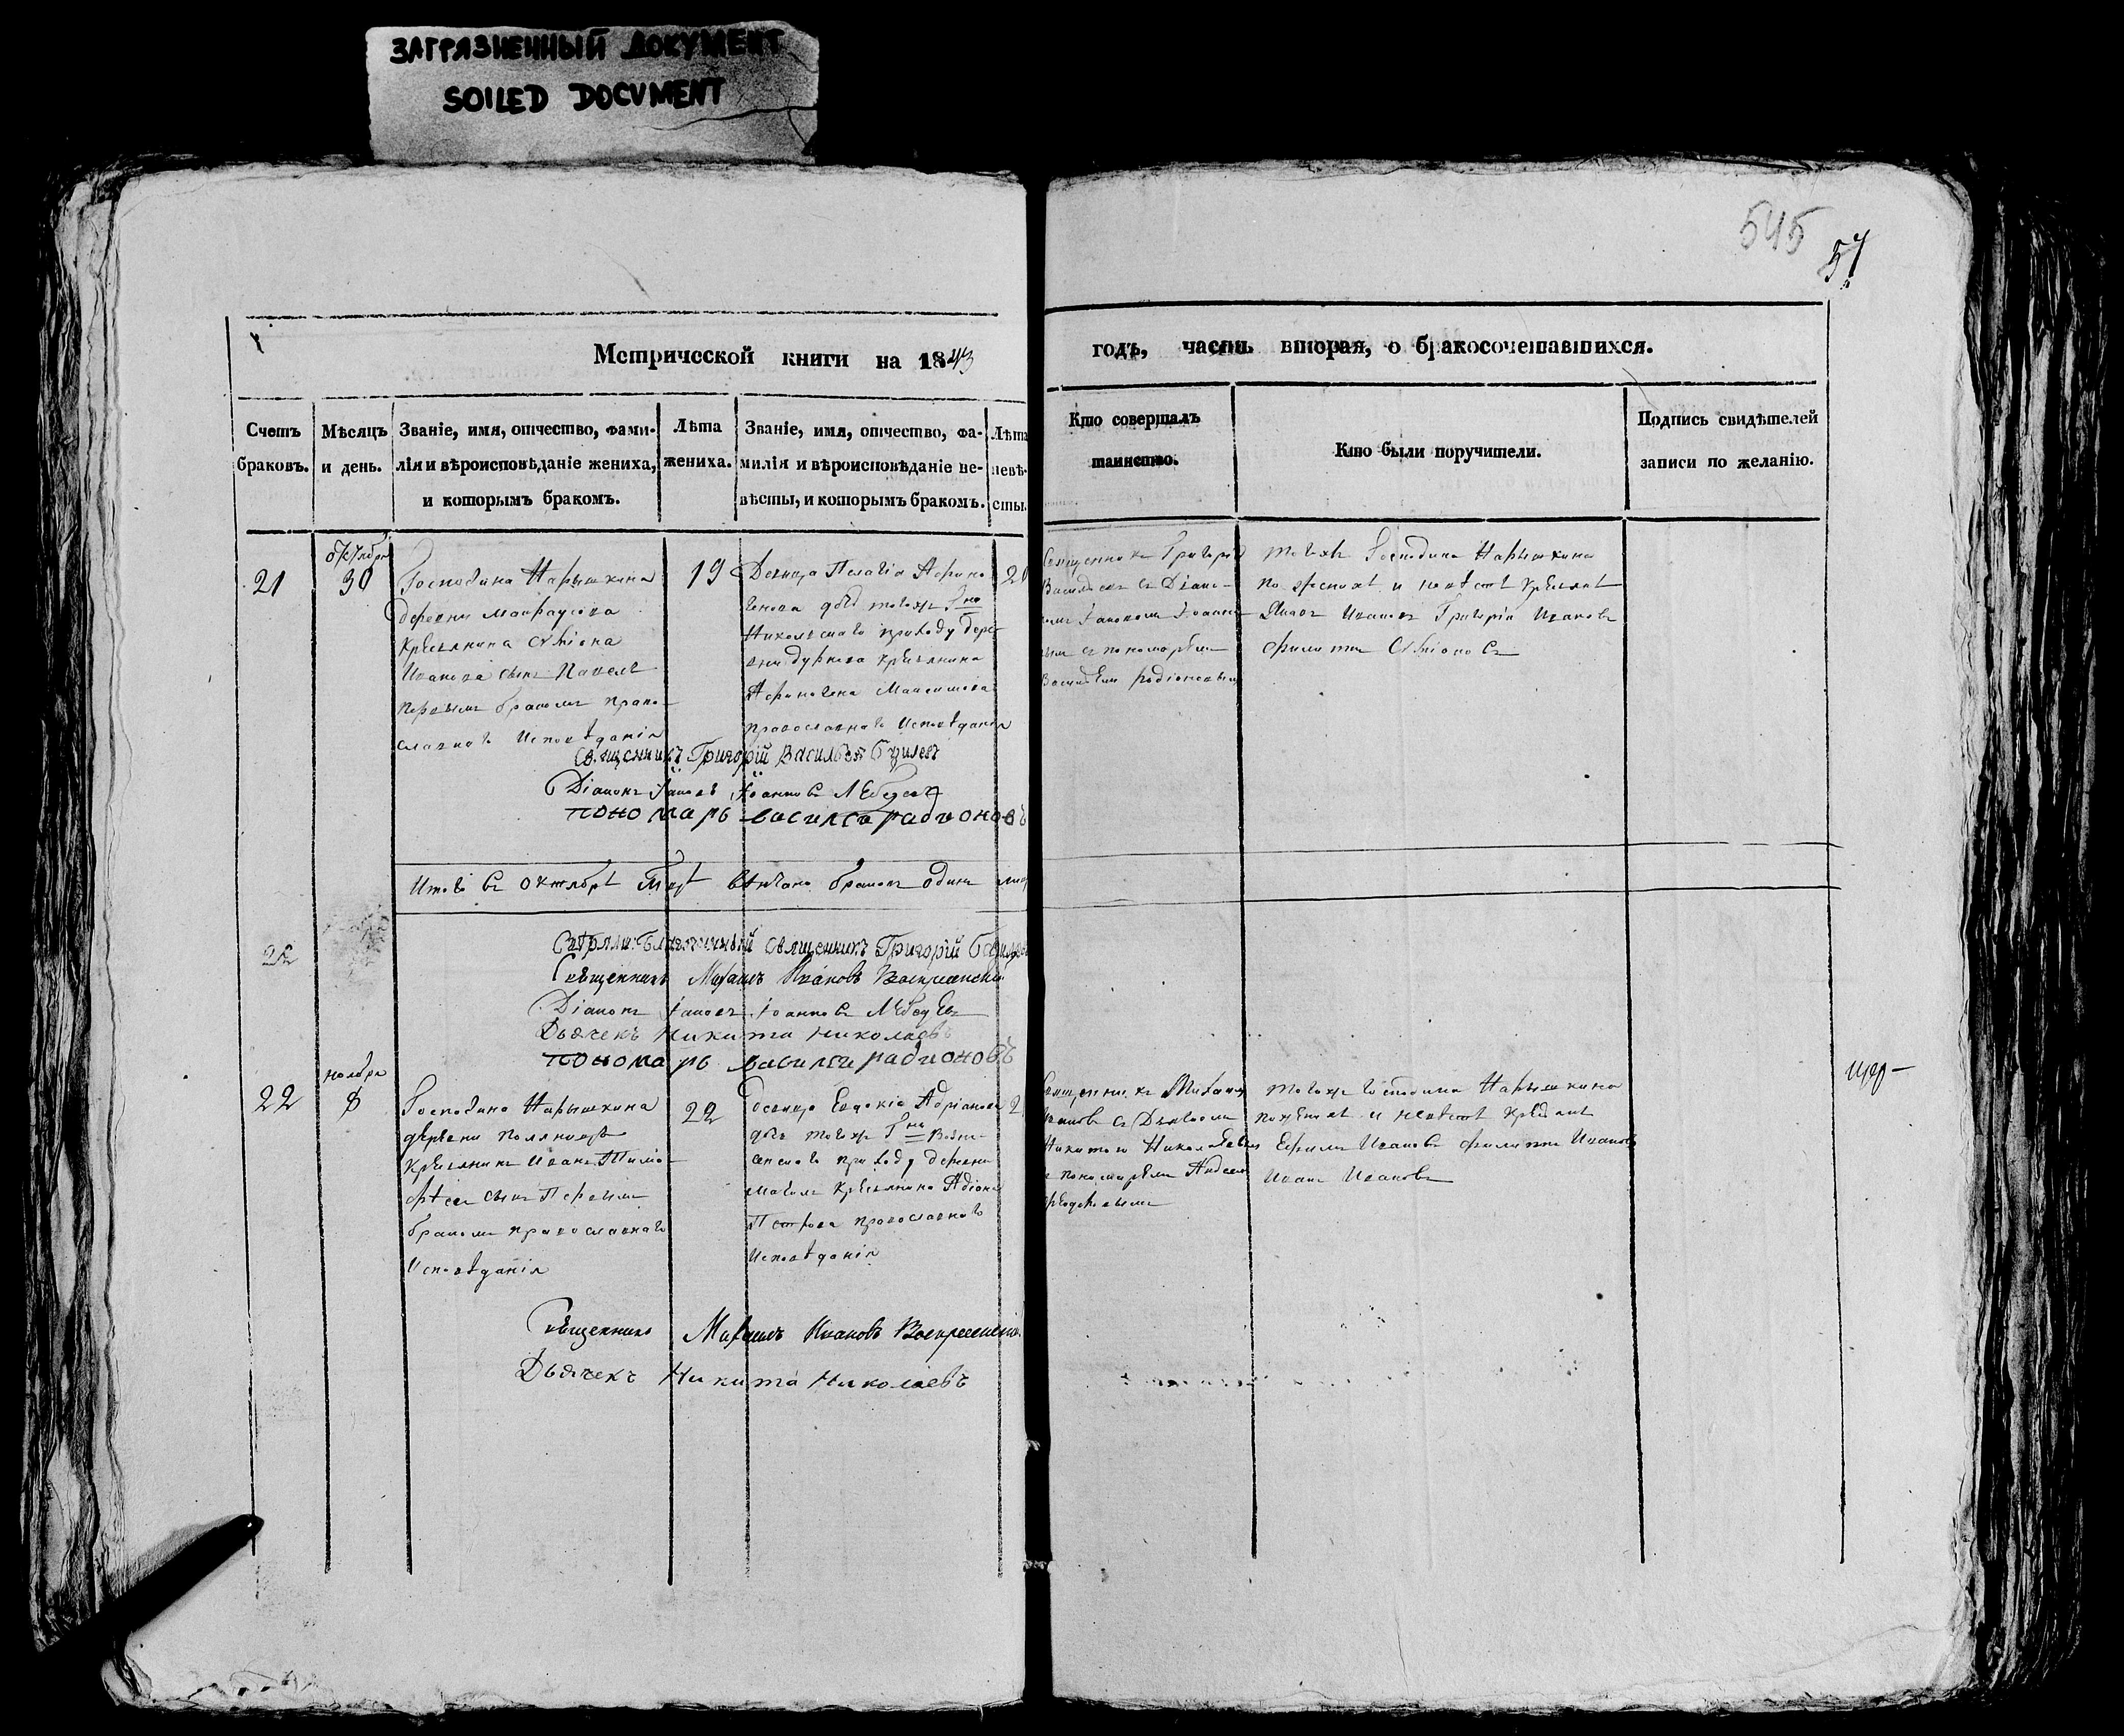 ЗАГРЯЗНЕННЫЙ ДОКУМЕНТ
SOILED DOCUMENT
545
57
Метрической книги на 1843
годъ, часть вторая, о бракосочетавшихся.
Счетъ браковъ.
Мѣсяцъ и день.
Званіе, имя, отчество, фами-
лія и вѣроисповѣданіе жениха,
и которымъ бракомъ.
Лѣта
жениха.
Званіе, имя, отчество, фа-
милія и вѣроисповѣданіе не-
вѣсты, и которымъ бракомъ.
Лѣта
невѣ-
сты.
Кто совершалъ
таинство.
Кто были поручители.
Подпись свидѣтелей
записи по желанію.
21
октября
30
Господина Нарышкина
деревни
крестьянина
Иванова сынъ Павелъ
первымъ бракомъ право-
славнаго исповѣданія
19
Девица Пелагія
дочь тогожъ Гна
Никольскаго приходу дере-
вни крестьянина
Максимова
православнаго исповѣданія
20
Священникъ Григорій
съ Діако-
номъ
съ пономаремъ
Родіоновымъ
тогожъ Господина Нарышкина
по женихѣ и невѣстѣ крестьяне
Ивановъ Григорій Ивановъ
Филиппъ
Священникъ Григорій Васильевъ
Діаконъ Іаковъ Іоанновъ Лебедевъ
пономарь василеи радионовъ
Итого въ октябрѣ вѣнчано бракомъ одинъ
22
благочинный священникъ Григорій
Священникъ Михаилъ Ивановъ Воскресенскій
Діаконъ Іаковъ Іоанновъ Лебедевъ
Дьячекъ Никита Николаевъ
пономарь василеи радионовъ
22
ноября
8
Господина Нарышкина
деревни
крестьянинъ Иванъ Тимо-
фѣевъ сынъ первымъ
бракомъ православнаго
исповѣданія
22
девица Евдокіа Адріанова
дочь тогожъ Гна Возне-
сенскаго приходу деревни
крестьянина
Петрова православнаго
исповѣданія
2
Священникъ Михаилъ
Ивановъ съ Дьячкомъ
Никитою Николаевымъ
пономаремъ
тогожъ господина Нарышкина
по женихѣ и невѣстѣ крестьяне
Ефимъ Ивановъ Филиппъ Ивановъ
Иванъ Ивановъ
Священникъ Михаилъ Ивановъ Воскресенскій
Дьячекъ Никита Николаевъ